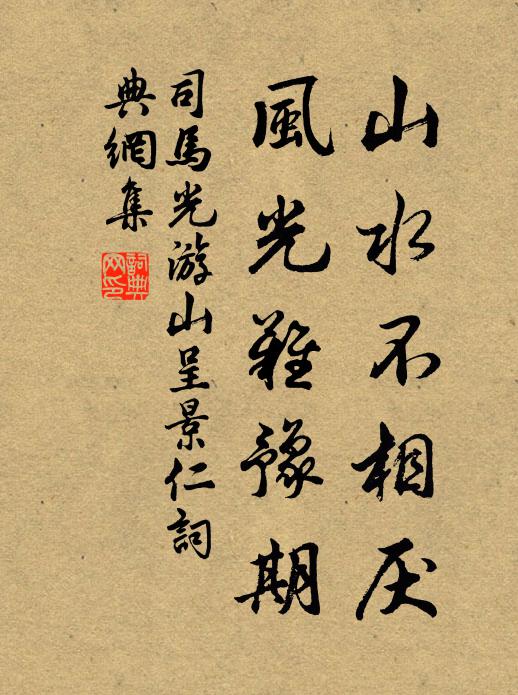 山水不相厌
風光難豫期
司馬光游山呈景仁詞
典網集
詞典
网印